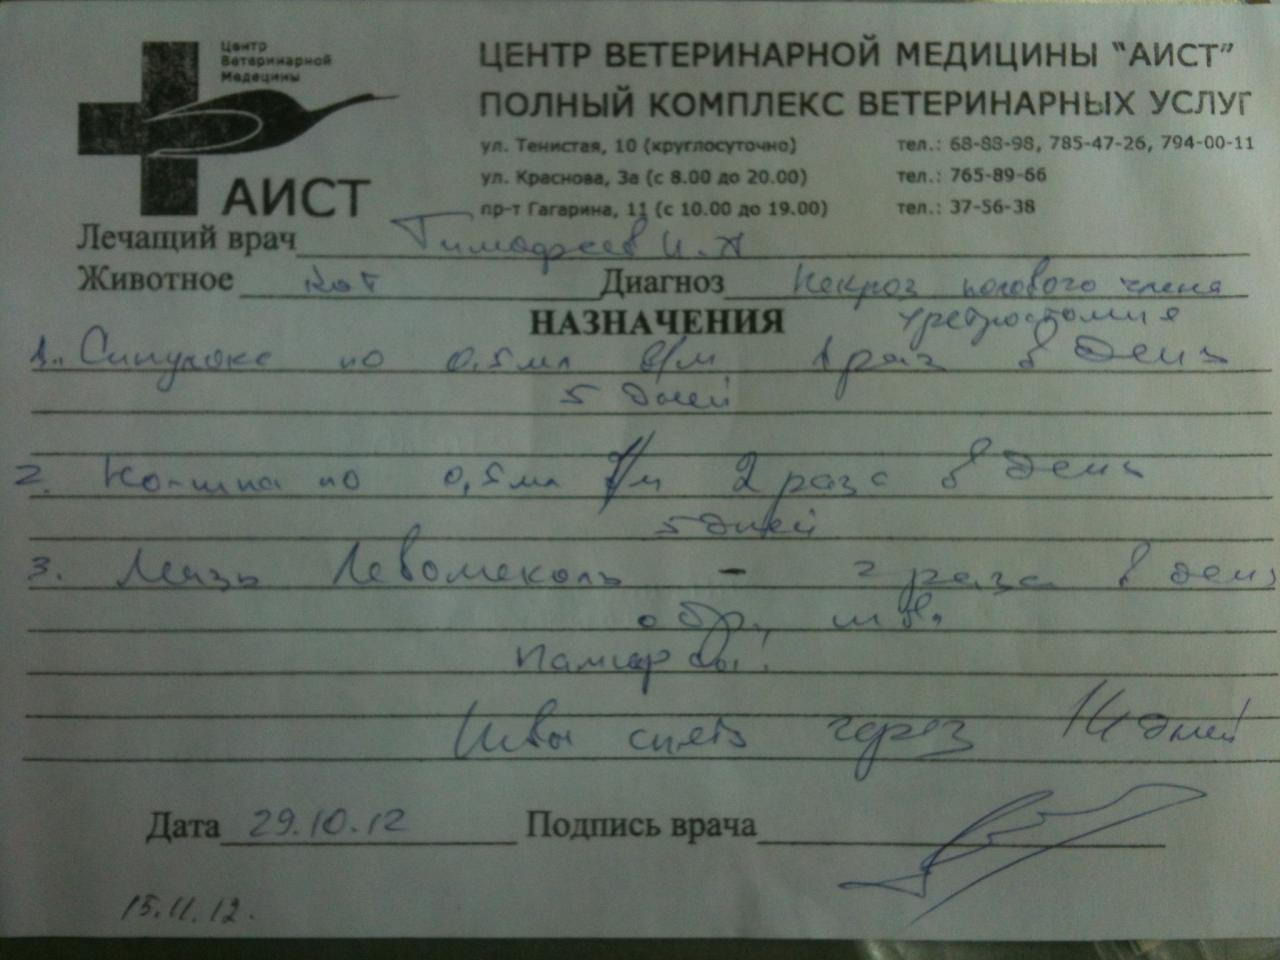 Центр
Ветеринарной
Медецины
АИСТ
ЦЕНТР ВЕТЕРИНАРНОЙ МЕДИЦИНЫ “АИСТ”
ПОЛНЫЙ КОМПЛЕКС ВЕТЕРИНАРНЫХ УСЛУГ
ул. Тенистая, 10 (круглосуточно) тел.: 68-88-98, 785-47-26, 794-00-11
ул. Краснова, 3а (с 8.00 до 20.00) тел.: 765-89-66
пр-т Гагарина, 11 (с 10.00 до 19.00) тел.: 37-56-38
Лечащий врач Тимофеев И.А
Животное кот Диагноз Некроз полового члена
уретростомия
НАЗНАЧЕНИЯ
1. Синулокс по 0,5мл в/м 1 раз в день
5 дней
2. Но-шпа по 0,5мл в/м 2 раза в день
5 дней
3. Мазь Левомеколь - 2 раза в день
обр. шв.
Памперсы!
Швы снять через 14 дней!
Дата 29.10.12 Подпись врача
15.11.12.